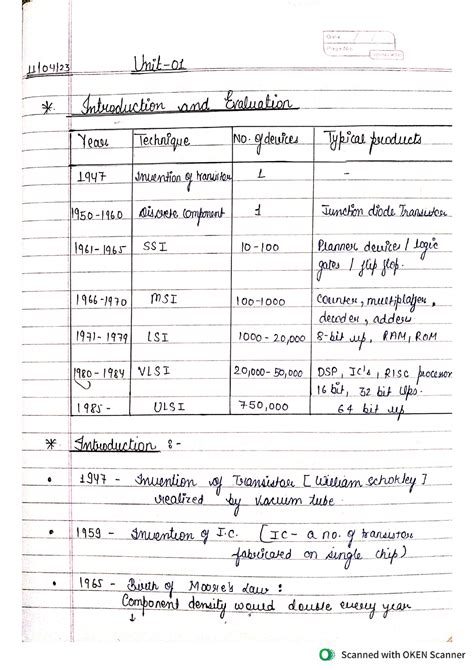 Date / /
Page No.
11/04/23 Unit-01
* Introduction and Evaluation
Year Technique No. of devices Typical products
1947 Invention of transistor 1 -
1950-1960 Discrete component 1 Junction diode Transistor
1961-1965 SSI 10-100 Planner devices / logic
gates / flip flop.
1966-1970 MSI 100-1000 Counter, multiplexer,
decoder, adders
1971-1979 LSI 1000-20,000 8-bit up, RAM, ROM
1980-1984 VLSI 20,000-50,000 DSP, IC's, RISC processor
16 bit, 32 bit Ups.
1985- ULSI 750,000 64 bit up
* Introduction :-
• 1947 - Invention of Transistor [William Schokley]
realized by vacuum tube.
• 1959 - Invention of I.C. [IC - a no. of transistor
fabricated on single chip)
• 1965 - Birth of Moore's Law :
Component density would double every year
↓
Scanned with OKEN Scanner